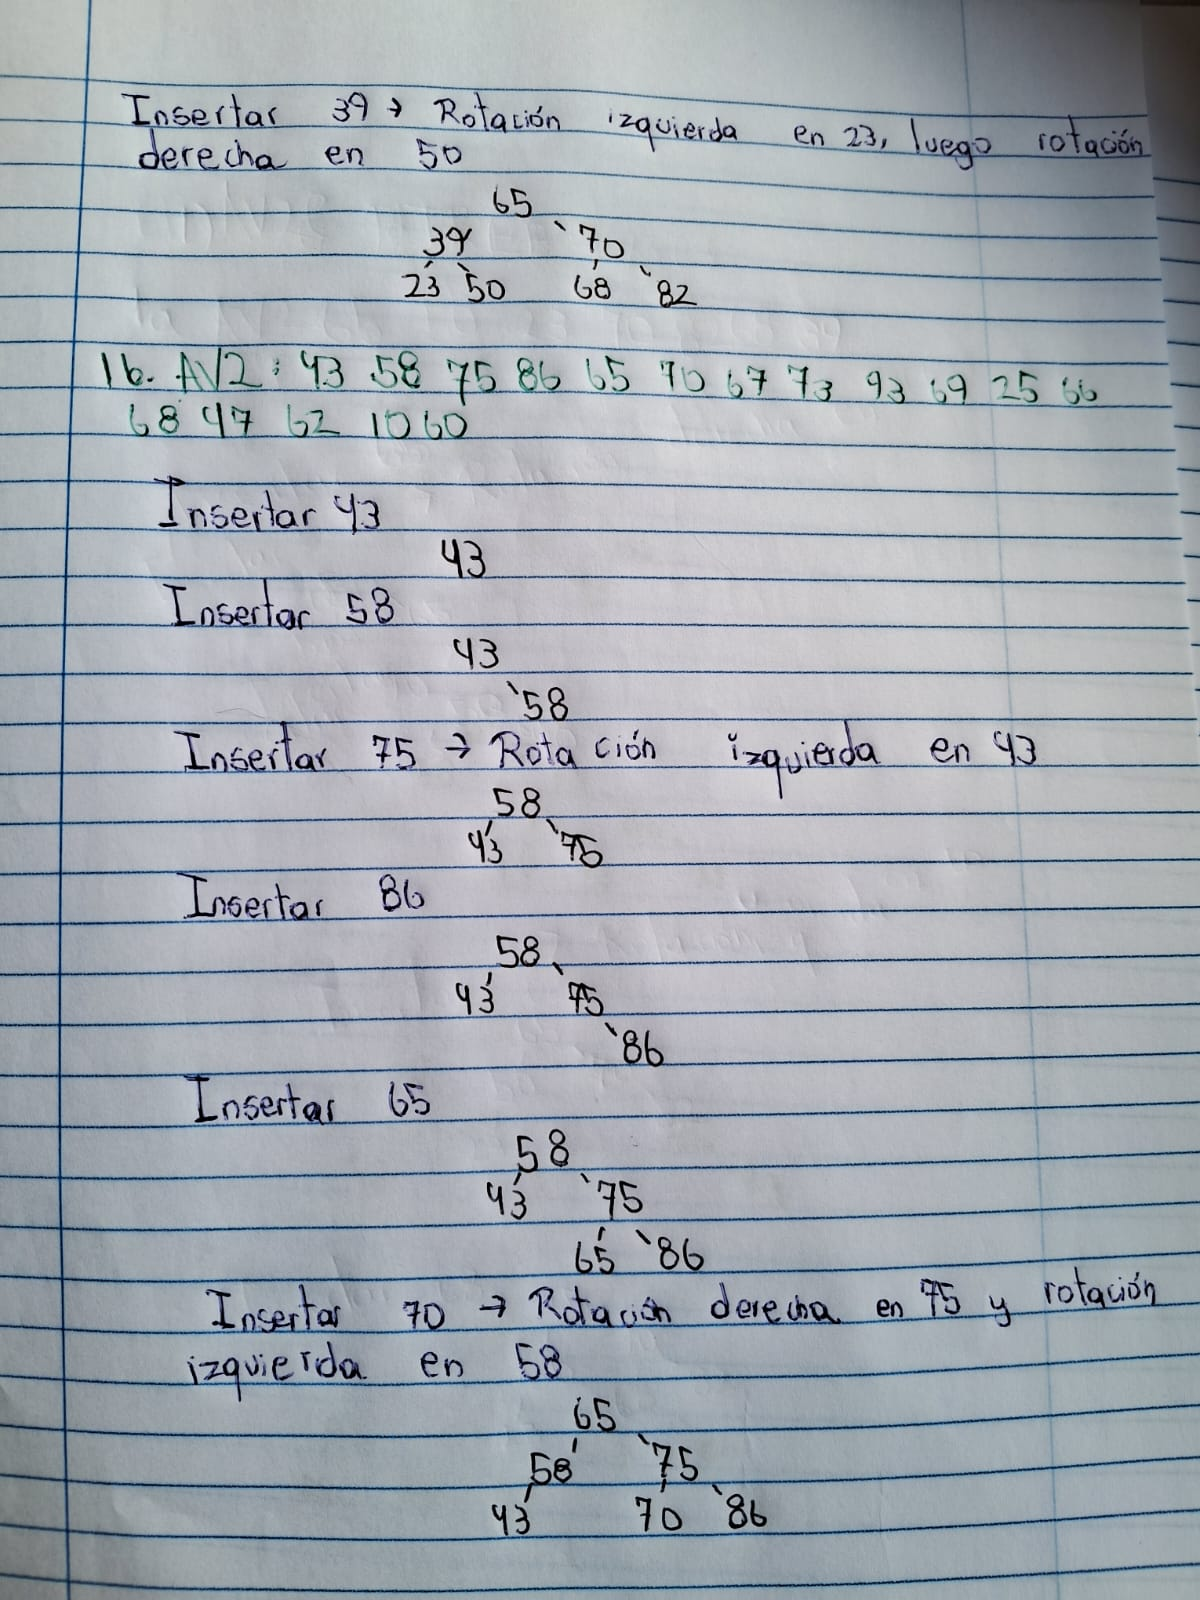 Insertar 39 → Rotación izquierda en 23, luego rotación
derecha en 50
65
39 70
23 50 68 82
16. AV2: 43 58 75 86 65 70 67 73 93 69 25 66
68 47 62 10 60
Insertar 43
43
Insertar 58
43
58
Insertar 75 → Rotación izquierda en 43
58
43 75
Insertar 86
58
43 75
86
Insertar 65
58
43 75
65 86
Insertar 70 → Rotación derecha en 75 y rotación
izquierda en 58
65
58 75
43 70 86